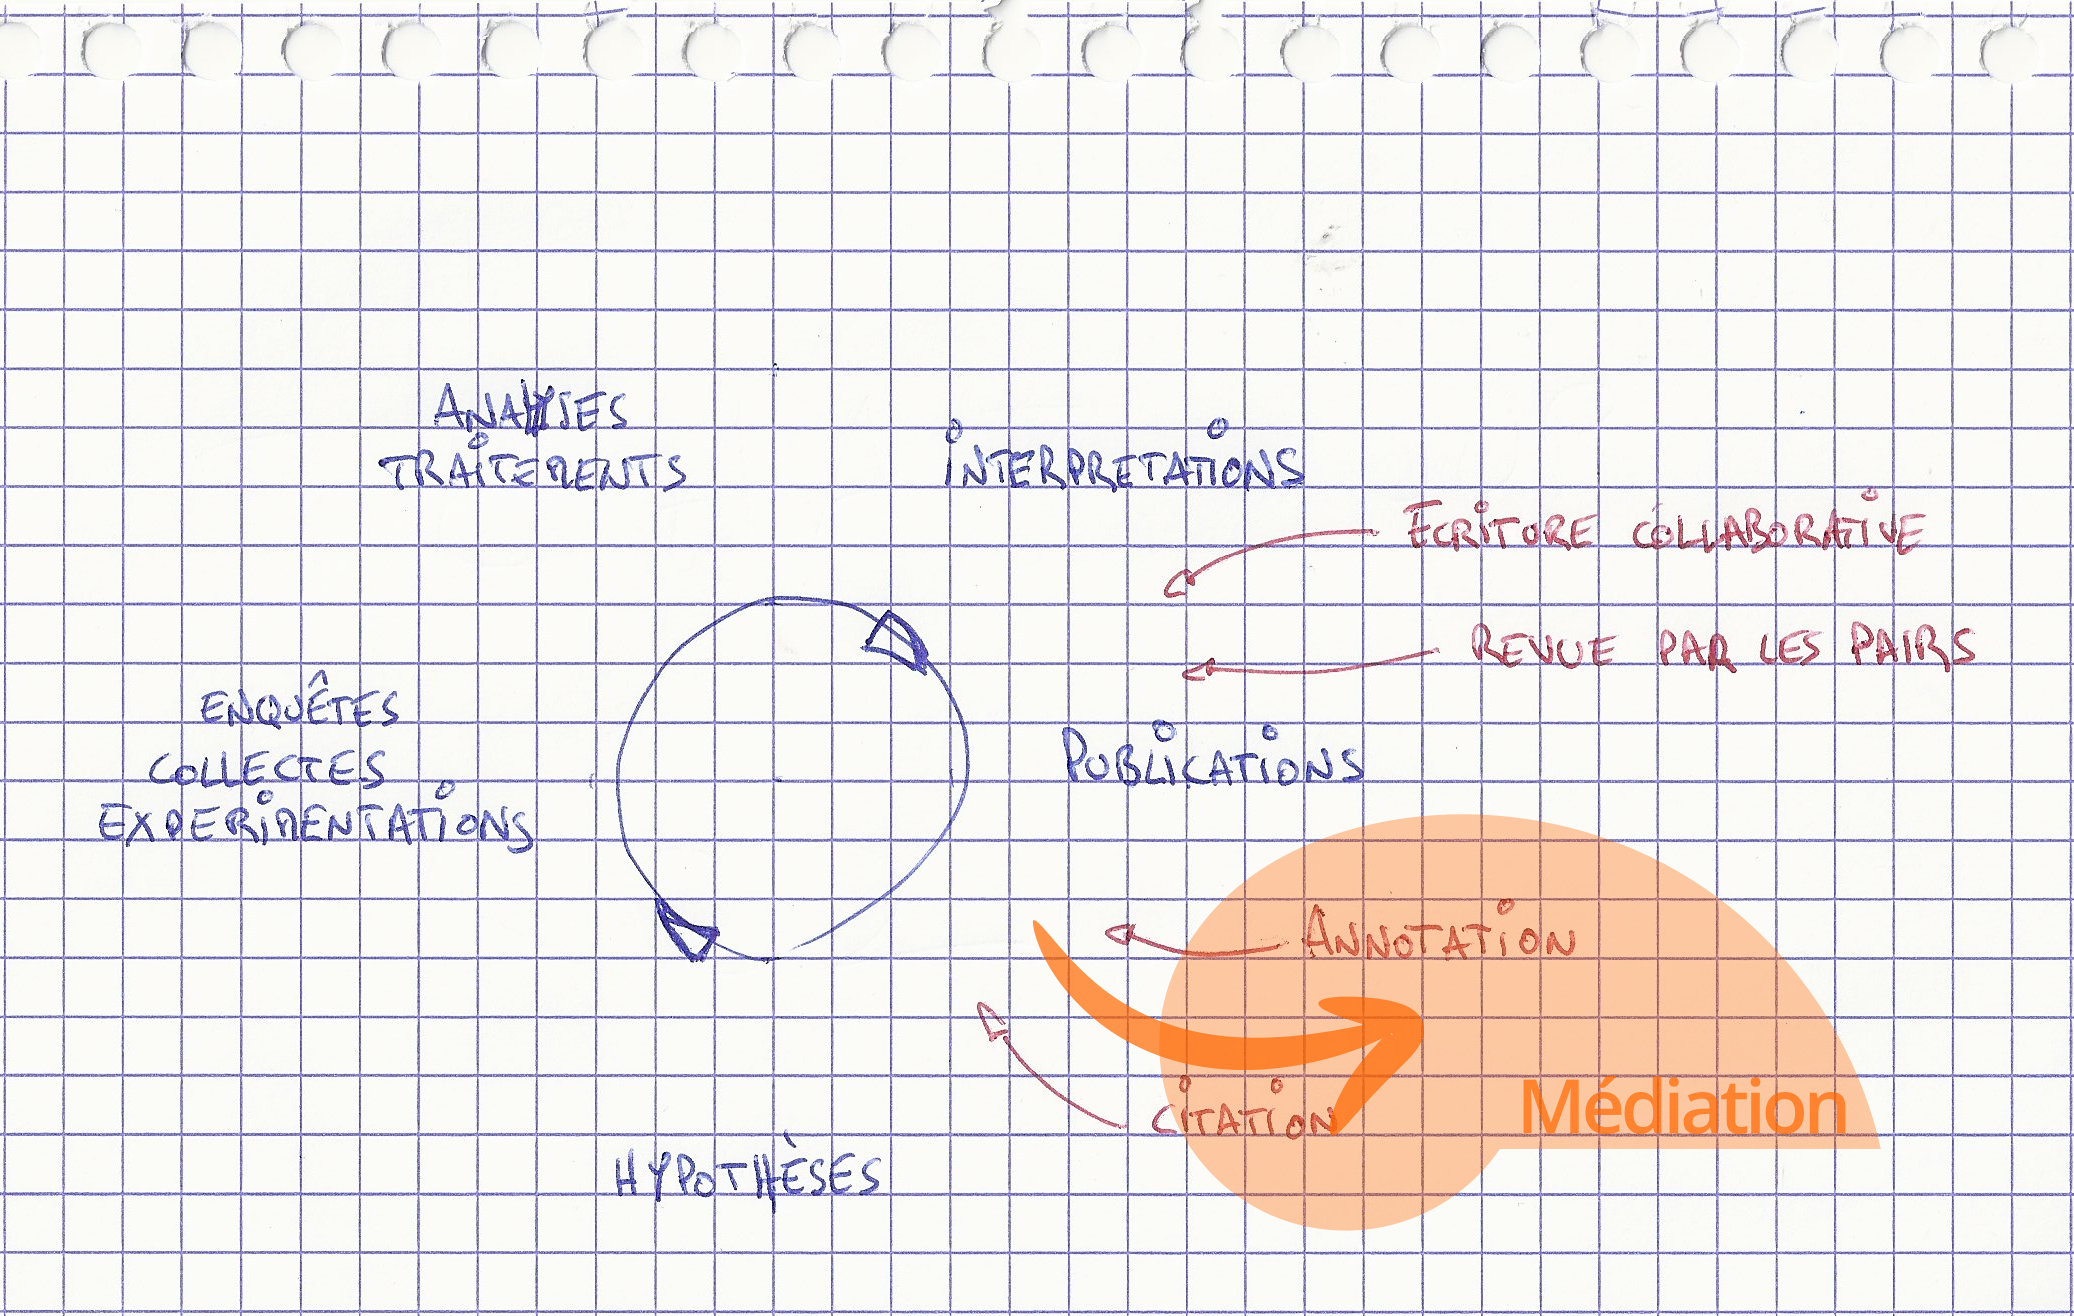 ANALYSES
TRAITEMENTS
INTERPRETATIONS
ECRITURE COLLABORATIVE
REVUE PAR LES PAIRS
ENQUÊTES
COLLECTES
EXPERIMENTATIONS
PUBLICATIONS
ANNOTATION
CITATION
Médiation
HYPOTHÈSES